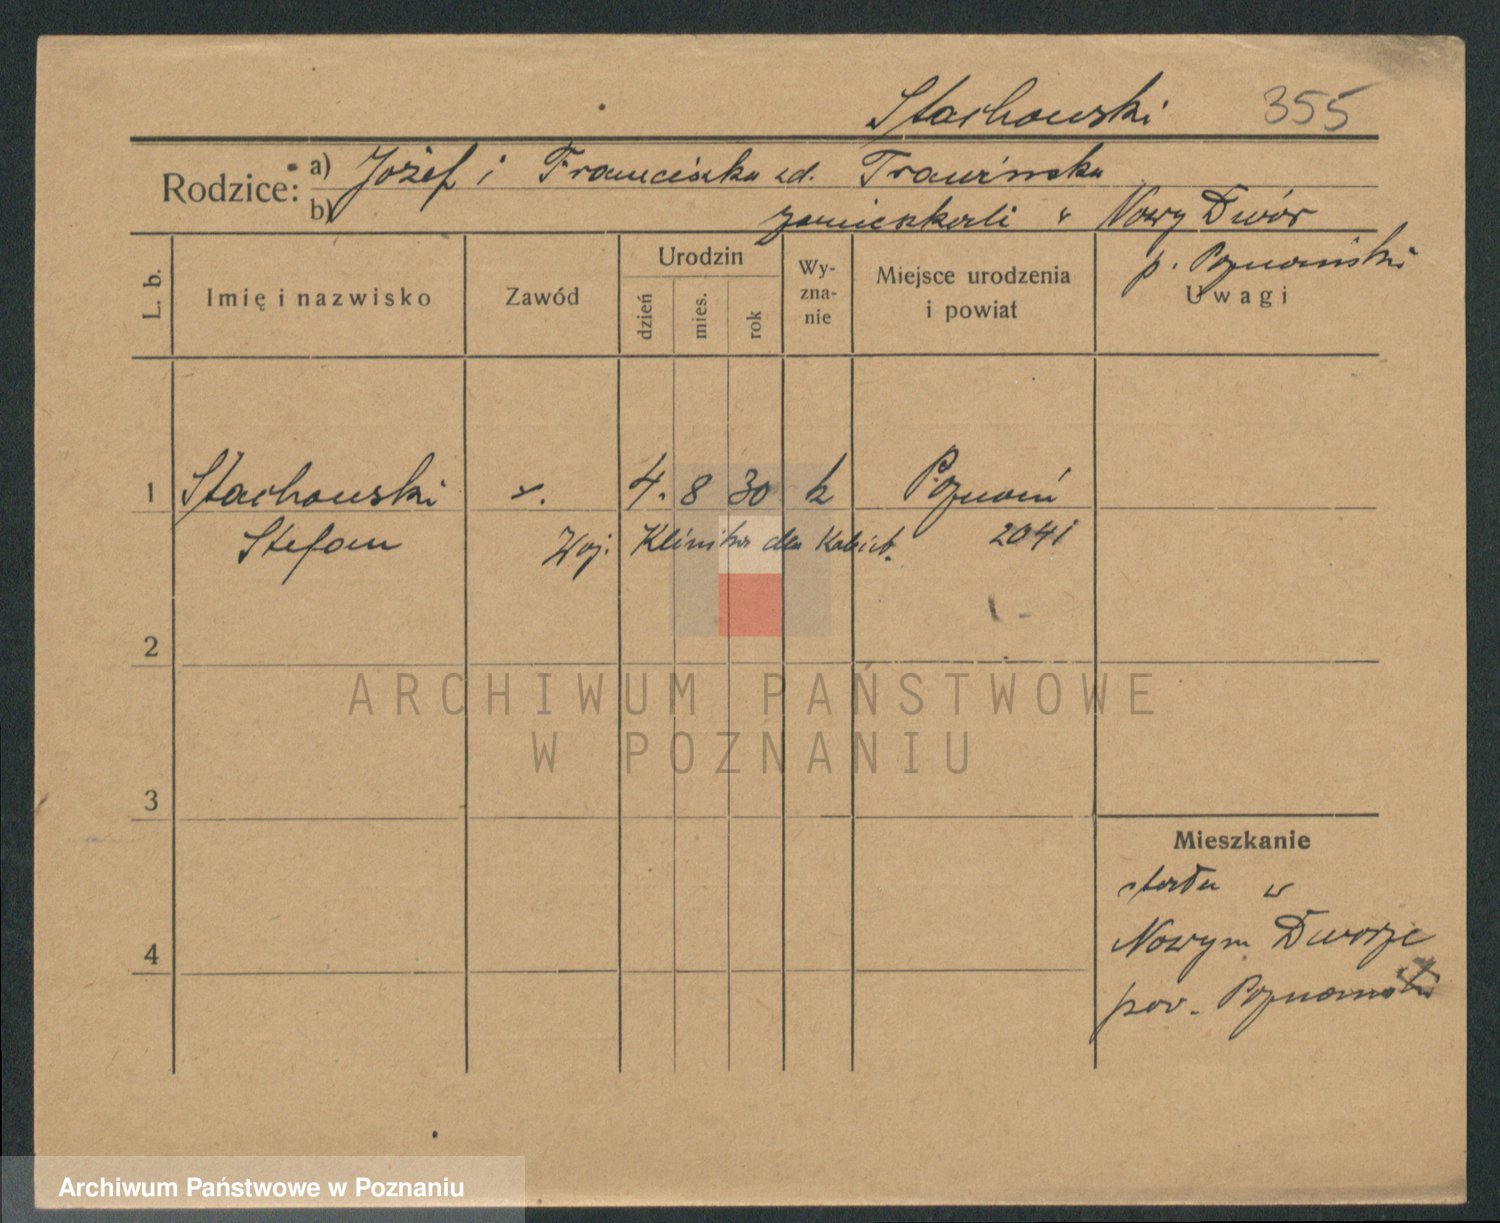 Stachowski 355
Rodzice: a) Józef i Franciszka zd. Trawińska
b) zamieszkali w Nowy Dwór
p. Poznański
L. b. Imię i nazwisko Zawód Urodzin dzień mies. rok Wy-zna-nie Miejsce urodzenia i powiat Uwagi
1 Stachowski 4. 8 30 k Poznań
Stefan Woj. Klinika dla Kobiet. 2041
2
ARCHIWUM PAŃSTWOWE
W POZNANIU
3
Mieszkanie
w
Nowym Dworze
4
pow. Poznański
Archiwum Państwowe w Poznaniu